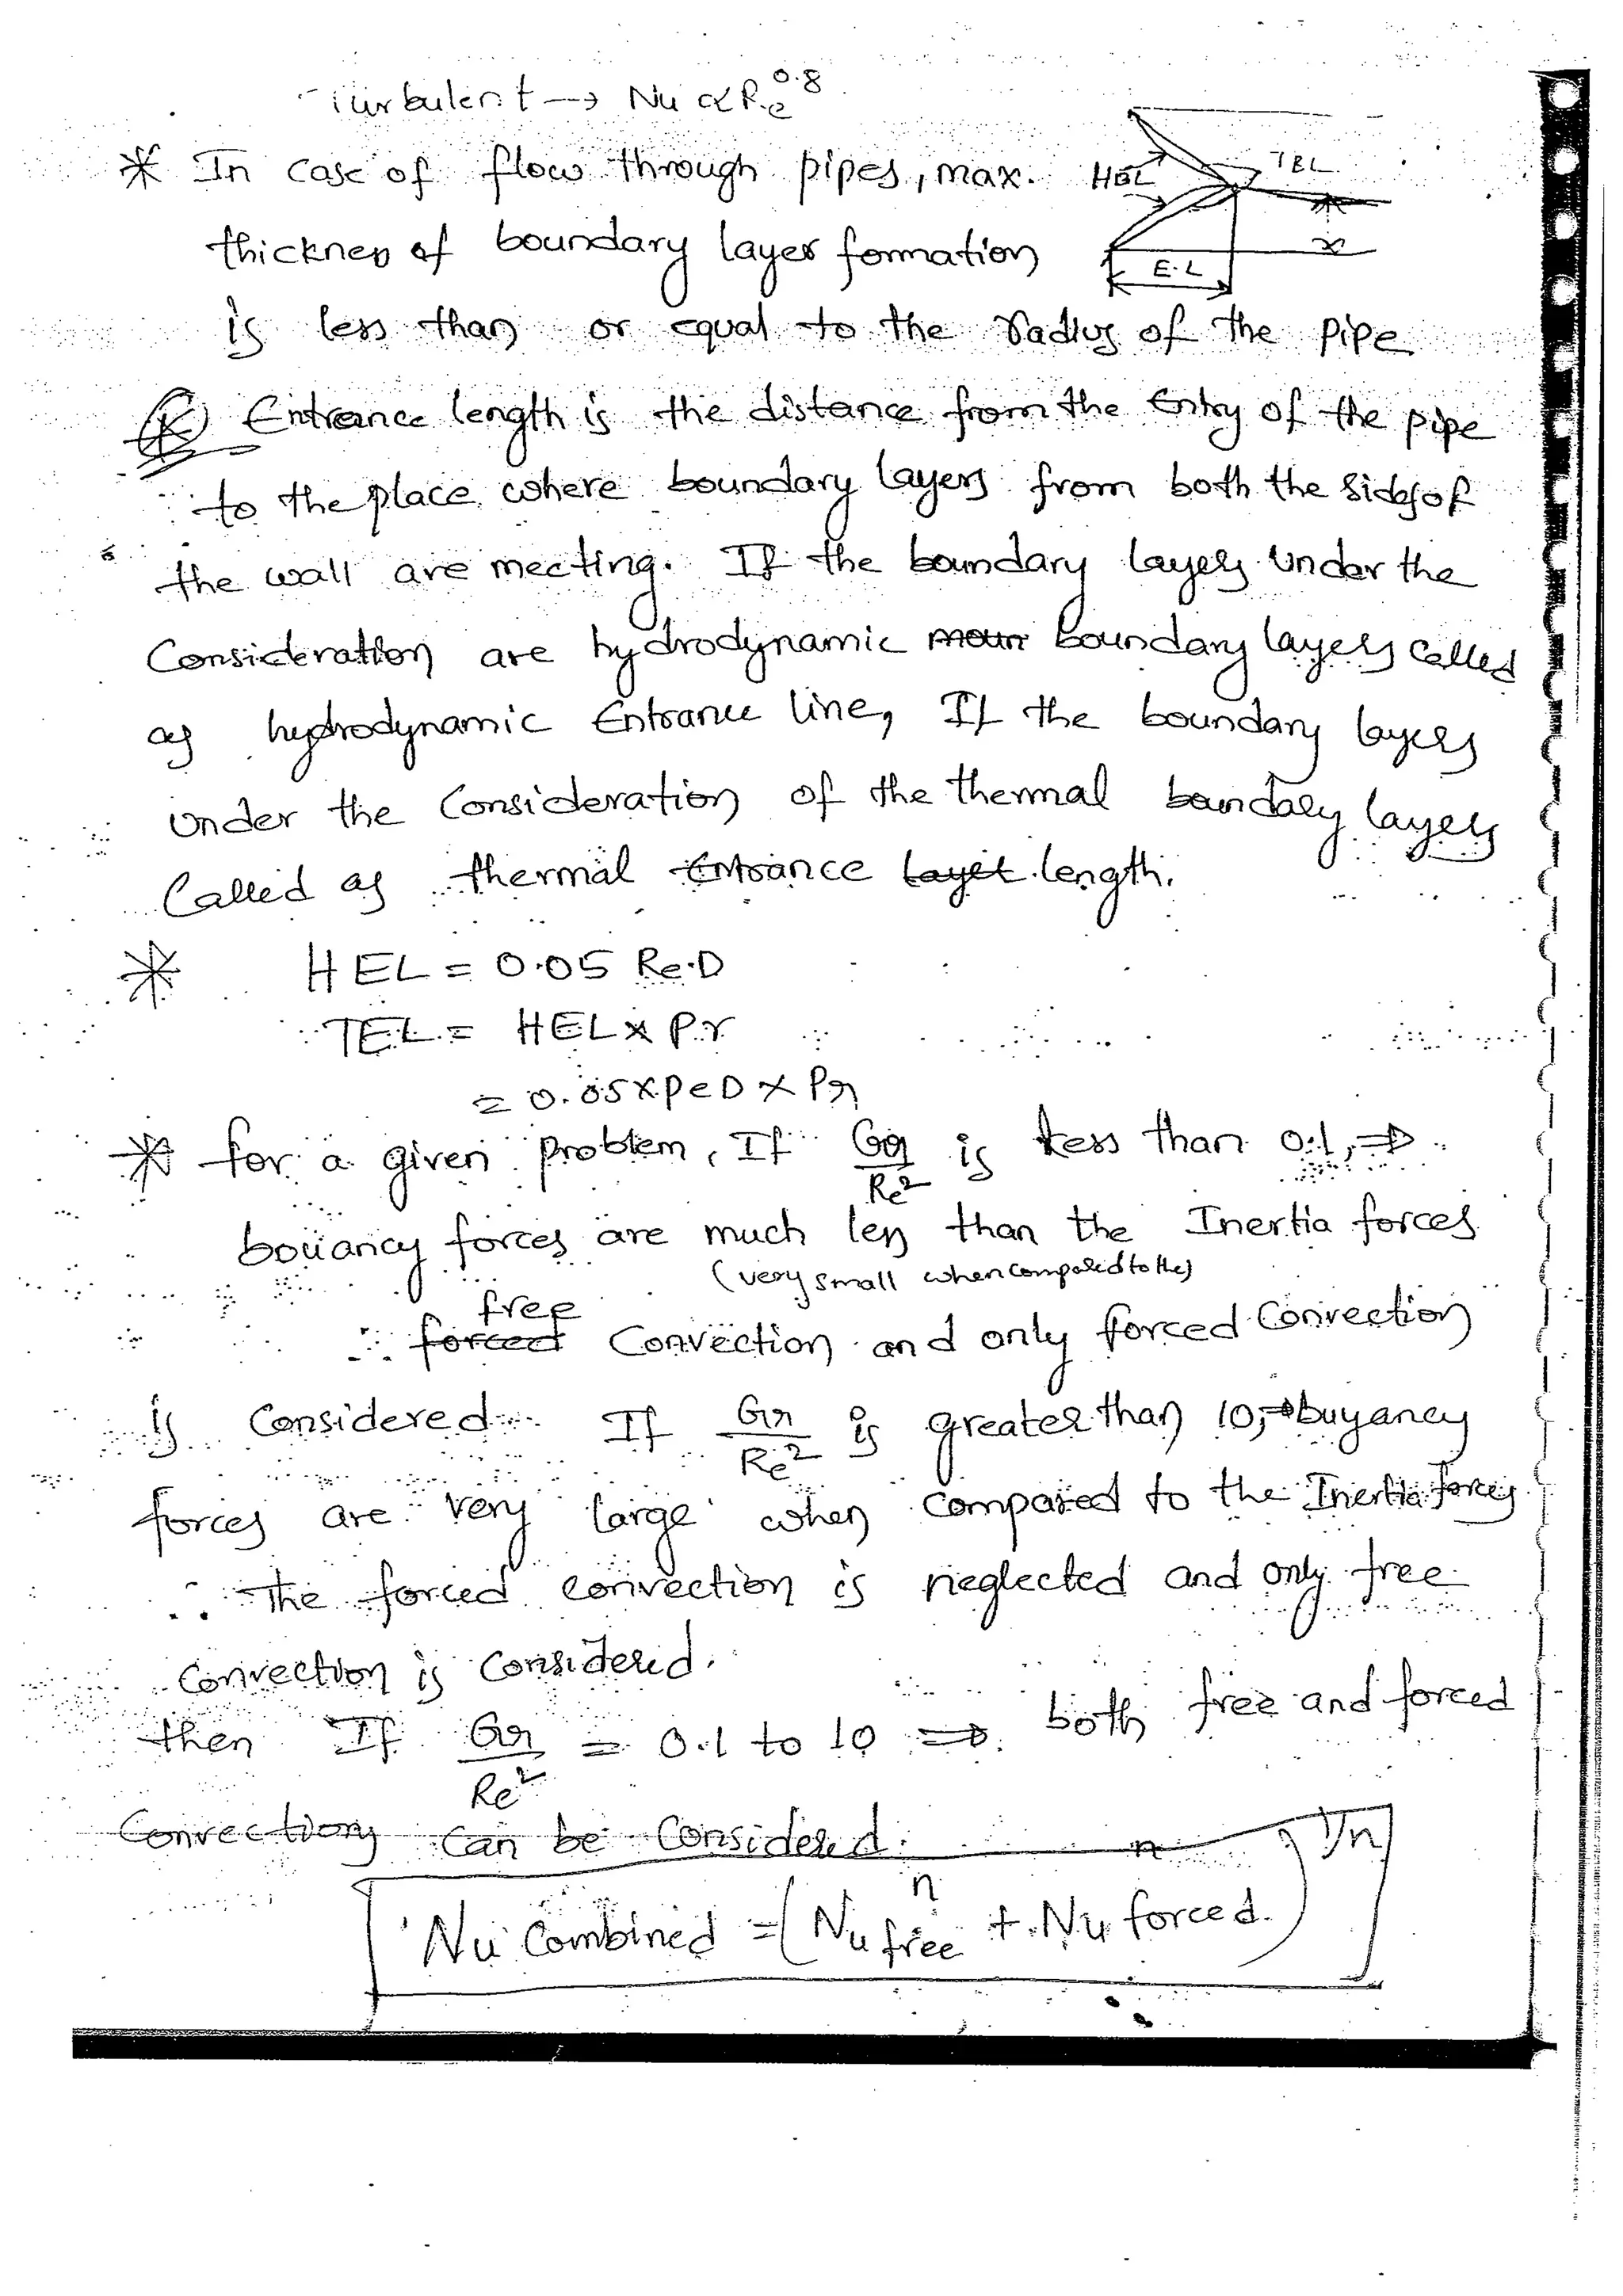 Turbulent → Nu ∝ Re^0.8
* In case of flow through pipes, max.
HBL
TBL
thickness of boundary layer formation
x
E.L
is less than or equal to the radius of the pipe
Entrance length is the distance from the Entry of the pipe
to the place where boundary layers from both the sides of
the wall are meeting. If the boundary layers under the
Consideration are hydrodynamic boundary layers called
as hydrodynamic Entrance line, If the boundary layers
under the Consideration of the thermal boundary layers
Called as thermal Entrance layer length.
* HEL = 0.05 Re.D
TEL = HEL x Pr
= 0.05 x ReD x Pr
* for a given problem, If Gr/Re² is less than 0.1, ⇒
bouancy forces are much less than the Inertia forces
(very small when compared to the)
free
∴ forced Convection and only forced Convection
is Considered. If Gr/Re² is greater than 10, ⇒ buyancy
forces are very large when compared to the Inertia forces
∴ The forced convection is neglected and only free
convection is considered.
then If Gr/Re² = 0.1 to 10 ⇒ both free and forced
Convection can be Considered.
Nu combined = (Nu^n free + Nu^n forced)^1/n